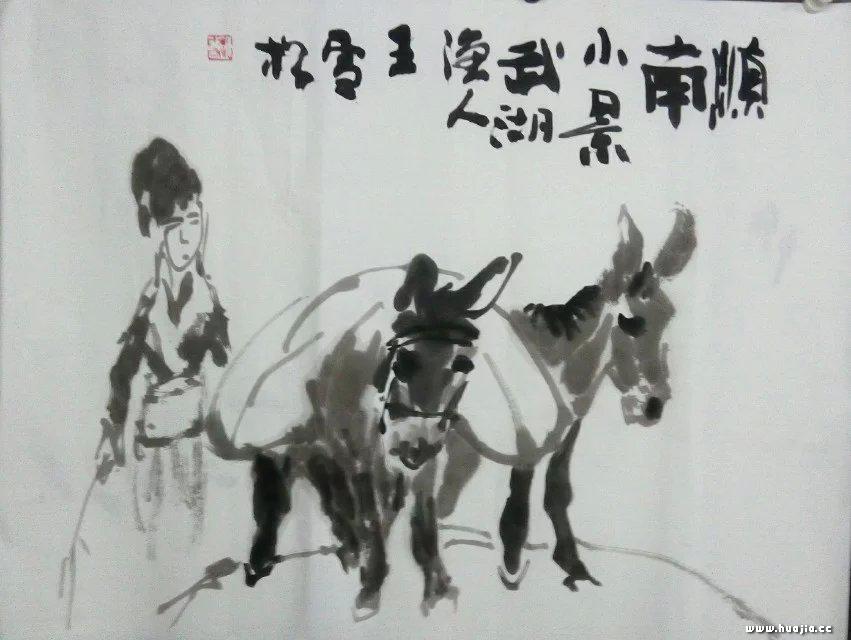 滇南小景
武湖渔人
王雪松
www.huajia.cc